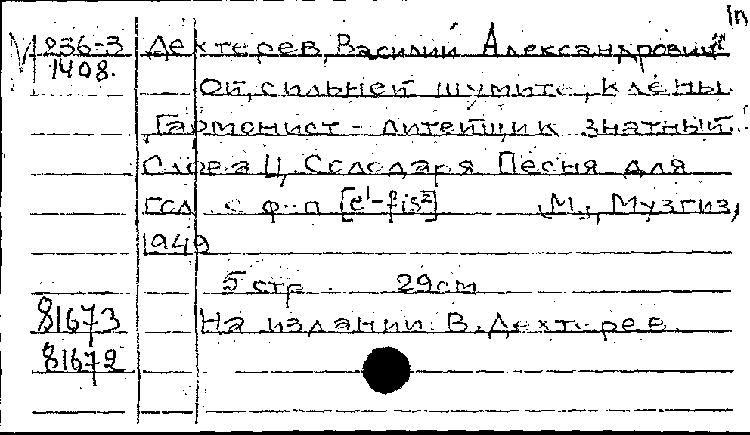 In
М 236-3 Дехтерев, Василий Александрович
1408.
Ой, сильней шумите, клёны
Гармонист - литейщик знатный.
Слова Ц. Солодаря Песня для
гол. с ф-п [e¹-fis²] М., Музгиз,
1949
5 стр. 29см
81673 На издании: В. Дехтерев.
81672